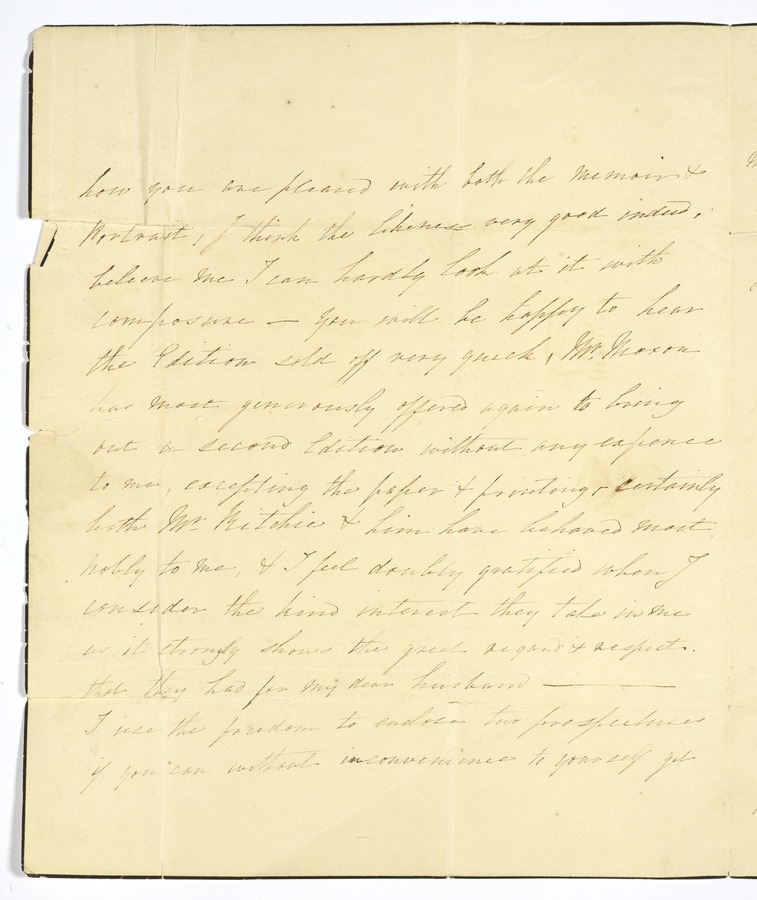 how you are pleased with both the Memoir &
Portrait, I think the likeness very good indeed,
believe me I can hardly look at it with
composure — You will be happy to hear
the Edition sold off very quick, Mr. Moxon
has most generously offered again to bring
out a second Edition without any expence
to me, excepting the paper & printing, certainly
both Mr Ritchie & him have behaved most
nobly to me, & I feel doubly gratified when I
consider the kind interest they take in me
as it strongly shows the great regard & respect.
that they had for my dear husband —
I use the freedom to enclose two prospectuses
if you can without inconvenience to yourself get